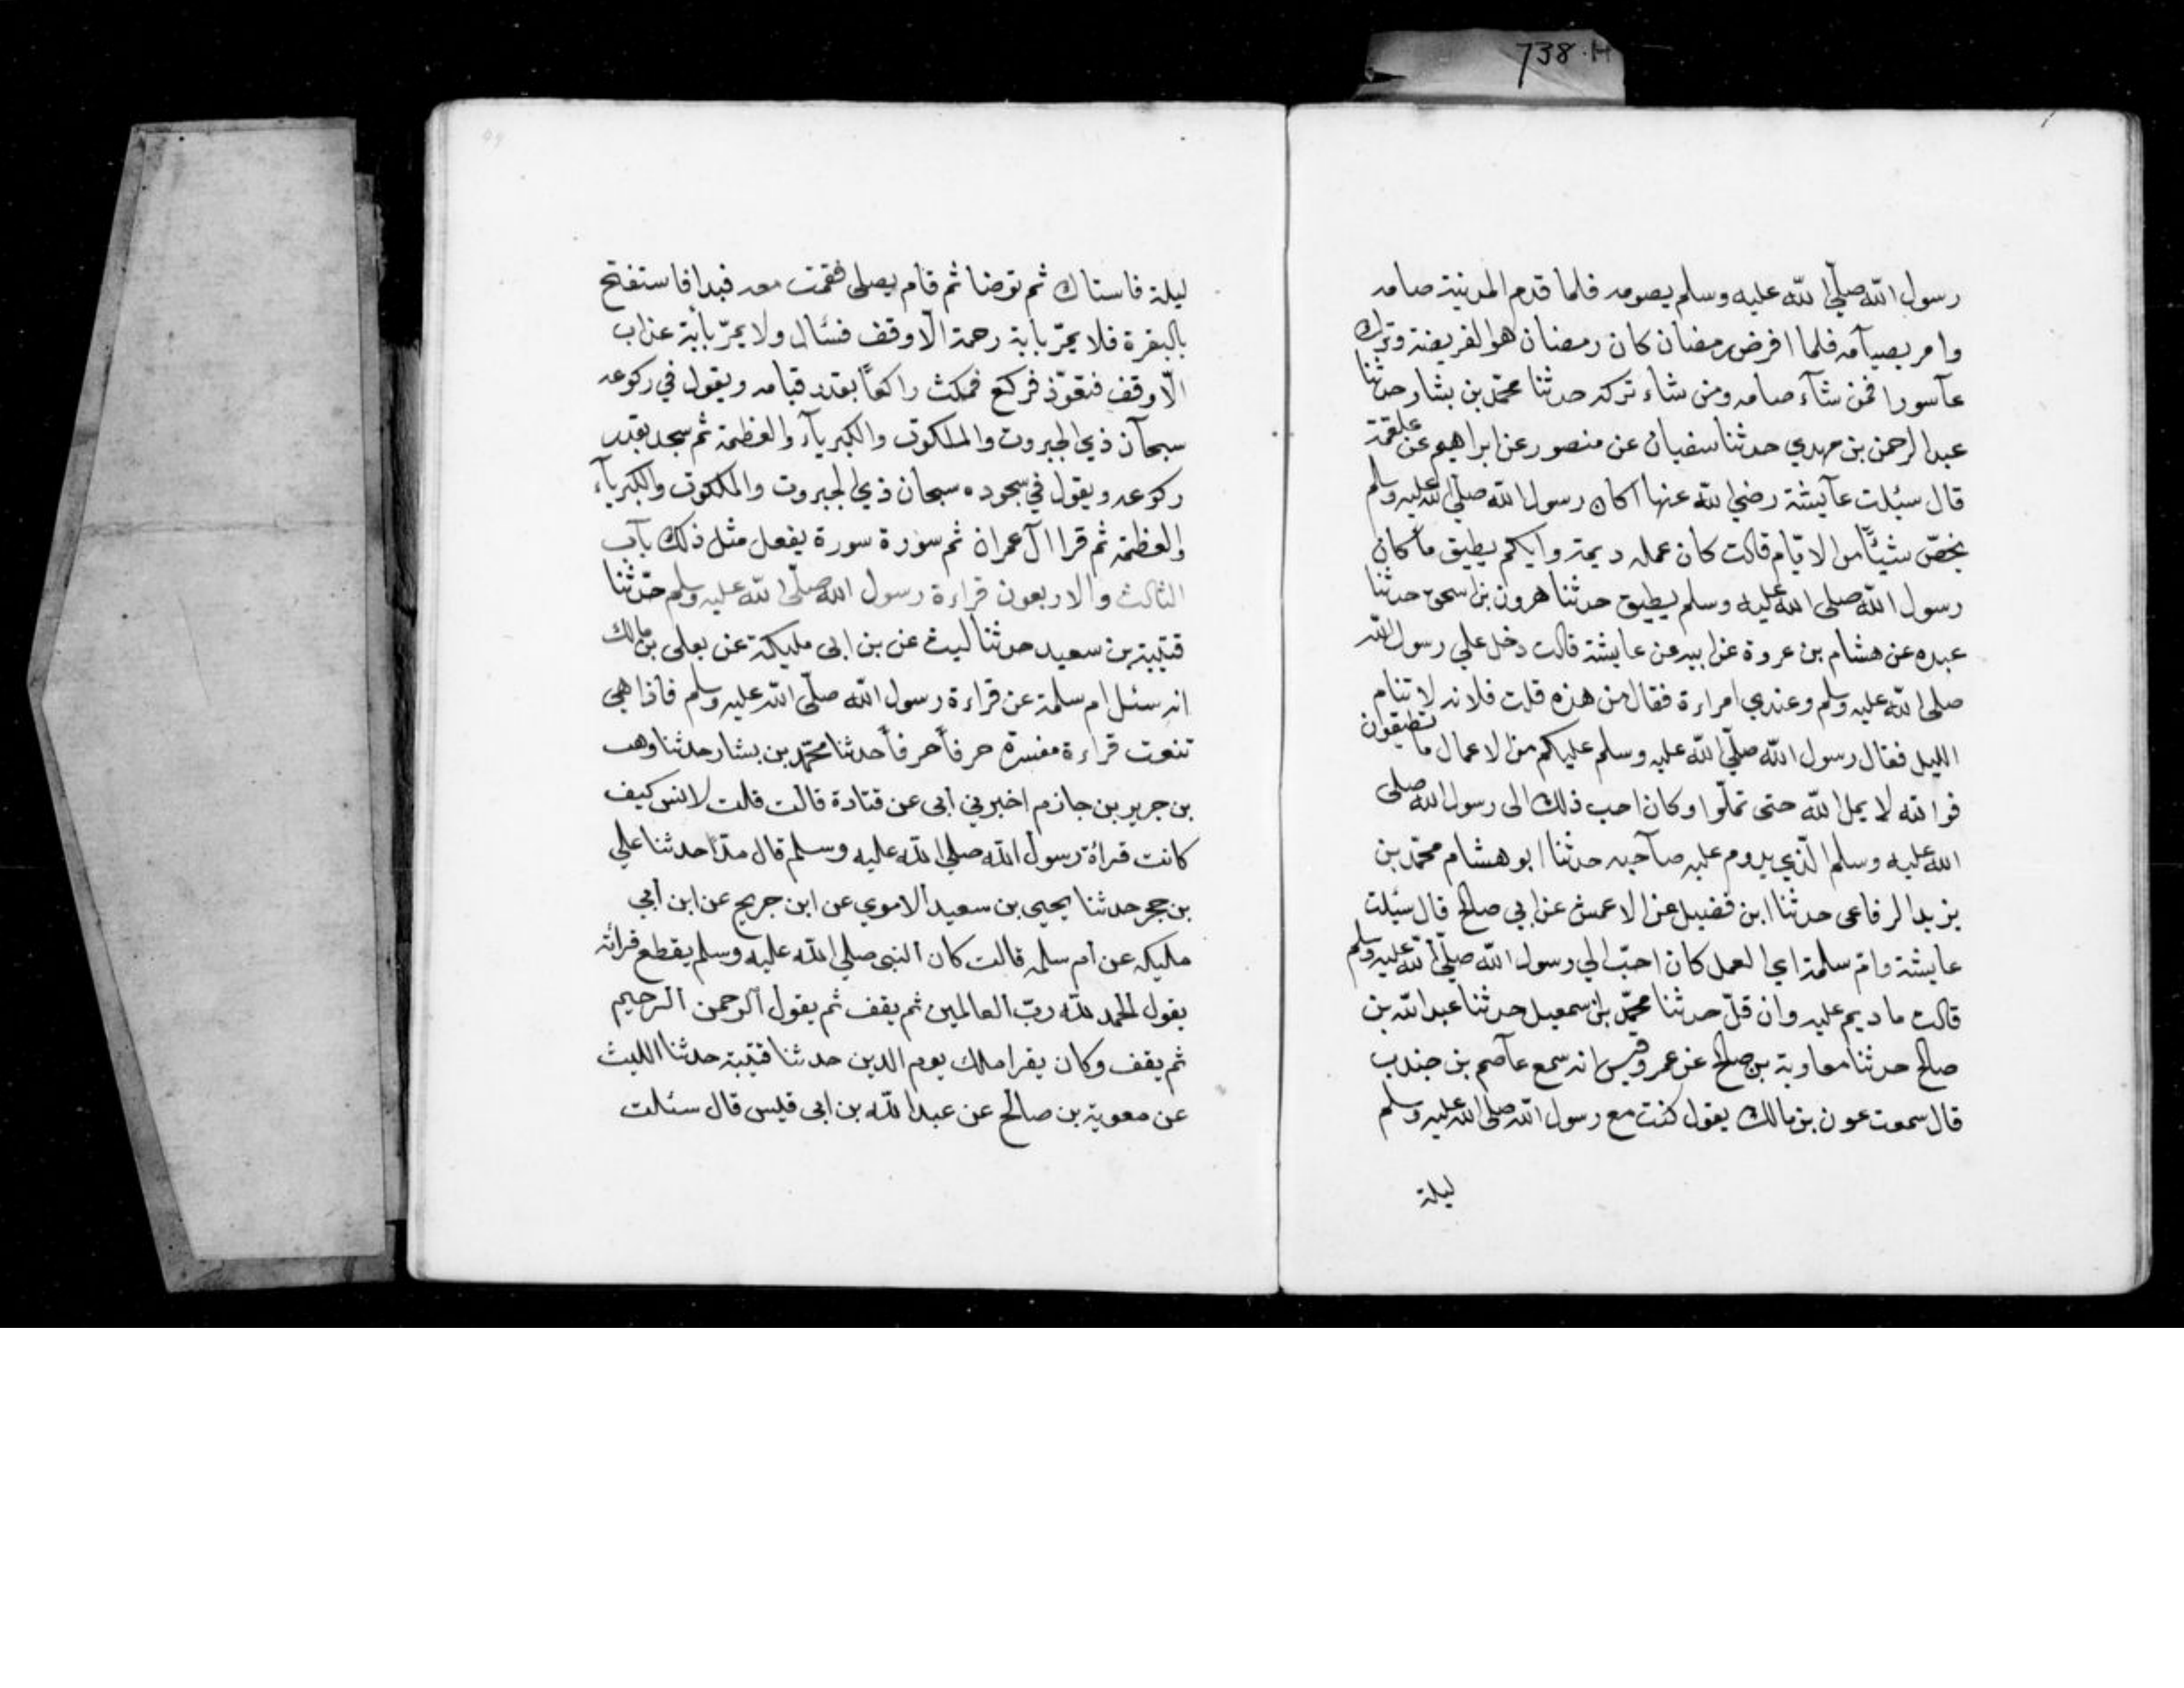 738.H
رسول الله صلّي الله عليه وسلم يصومه فلما قدم المدينة صامه
وامر بصيآمه فلما افرض رمضان كان رمضان هو الفريضة وترك
عآسورا فمن شآء صامه ومن شاء تركه حدثنا محمّد بن بشار حدثنا
عبد الرحمن بن مهدي حدثنا سفيان عن منصور عن ابراهيم عن علقمة
قال سئلت عآيشة رضي الله عنها اكان رسول الله صلّي الله عليه وسلم
يخصّ شيئًا من الايّام قالت كان عمله ديمة وايكم يطيق ما كان
رسول الله صلى الله عليه وسلم يطيق حدثنا هرون بن اسحق حدثنا
عبده عن هشام بن عروة عن ابيه عن عايشة قالت دخل علي رسول الله
صلى الله عليه وسلم وعندي امراءة فقال من هذه قلت فلانه لا تنام
الليل فقال رسول الله صلّي الله عليه وسلم عليكم من الاعمال ما تطيقون
فوالله لا يمل الله حتى تملّوا وكان احب ذلك الى رسول الله صلى
الله عليه وسلم الّذي يدوم عليه صآحبه حدثنا ابو هشام محمّد بن
يزيد الرفاعى حدثنا ابن فضيل عن الاعمش عن ابي صالح قال سئلت
عايشة وامّ سلمة اي العمل كان احبّ الي رسول الله صلّي الله عليه وسلم
قالت ما ديم عليه وان قلّ حدثنا محمّد بن اسمعيل حدثنا عبد الله بن
صالح حدثنا معاوية بن صالح عن عمرو قيس انه سمع عآصم بن جندب
قال سمعت عون بن مالك يقول كنت مع رسول الله صلى الله عليه وسلم
ليلة
ليلة فاستاك ثم توضا ثم قام يصلى فقمت معه فبدا فاستفتح
بالبقرة فلا يمرّ باية رحمة الّا وقف فسئال ولا يمرّ بأية عذاب
الّا وقف فتعوّذ فركع فمكث راكعًا بقدر قيامه ويقول في ركوعه
سبحآن ذي الجبروت والملكوت والكبريآء والعظمة ثم سجد بقدر
ركوعه ويقول في سجوده سبحان ذي الجبروت والملكوت والكبريآء
والعظمة ثم قرا آل عمران ثم سورة سورة يفعل مثل ذلك بآب
الثالث والاربعون قراءة رسول الله صلّى الله عليه وسلم حدّثنا
قتيبة بن سعيد حدثنا ليث عن بن ابى مليكة عن يعلى بن مالك
انه سئل ام سلمة عن قراءة رسول الله صلّى الله عليه وسلم فاذا هي
تنعت قراءة مفسرة حرفاً حرفاً حدثنا محمّد بن بشار حدثنا وهب
بن جرير بن جازم اخبرني أبى عن قتادة قالت قلت لانس كيف
كانت قراة رسول الله صلي الله عليه وسلم قال مدّا حدثنا علي
بن حجر حدثنا يحيى بن سعيد الاموي عن ابن جريج عن ابن أبي
مليكه عن ام سلمه قالت كان النبى صلي الله عليه وسلم يقطع قرائته
يقول الحمد لله ربّ العالمين ثم يقف ثم يقول الرحمن الرحيم
ثم يقف وكان يقرا ملك يوم الدين حدثنا قتيبة حدثنا الليث
عن معوية بن صالح عن عبد الله بن ابى قيس قال سئلت